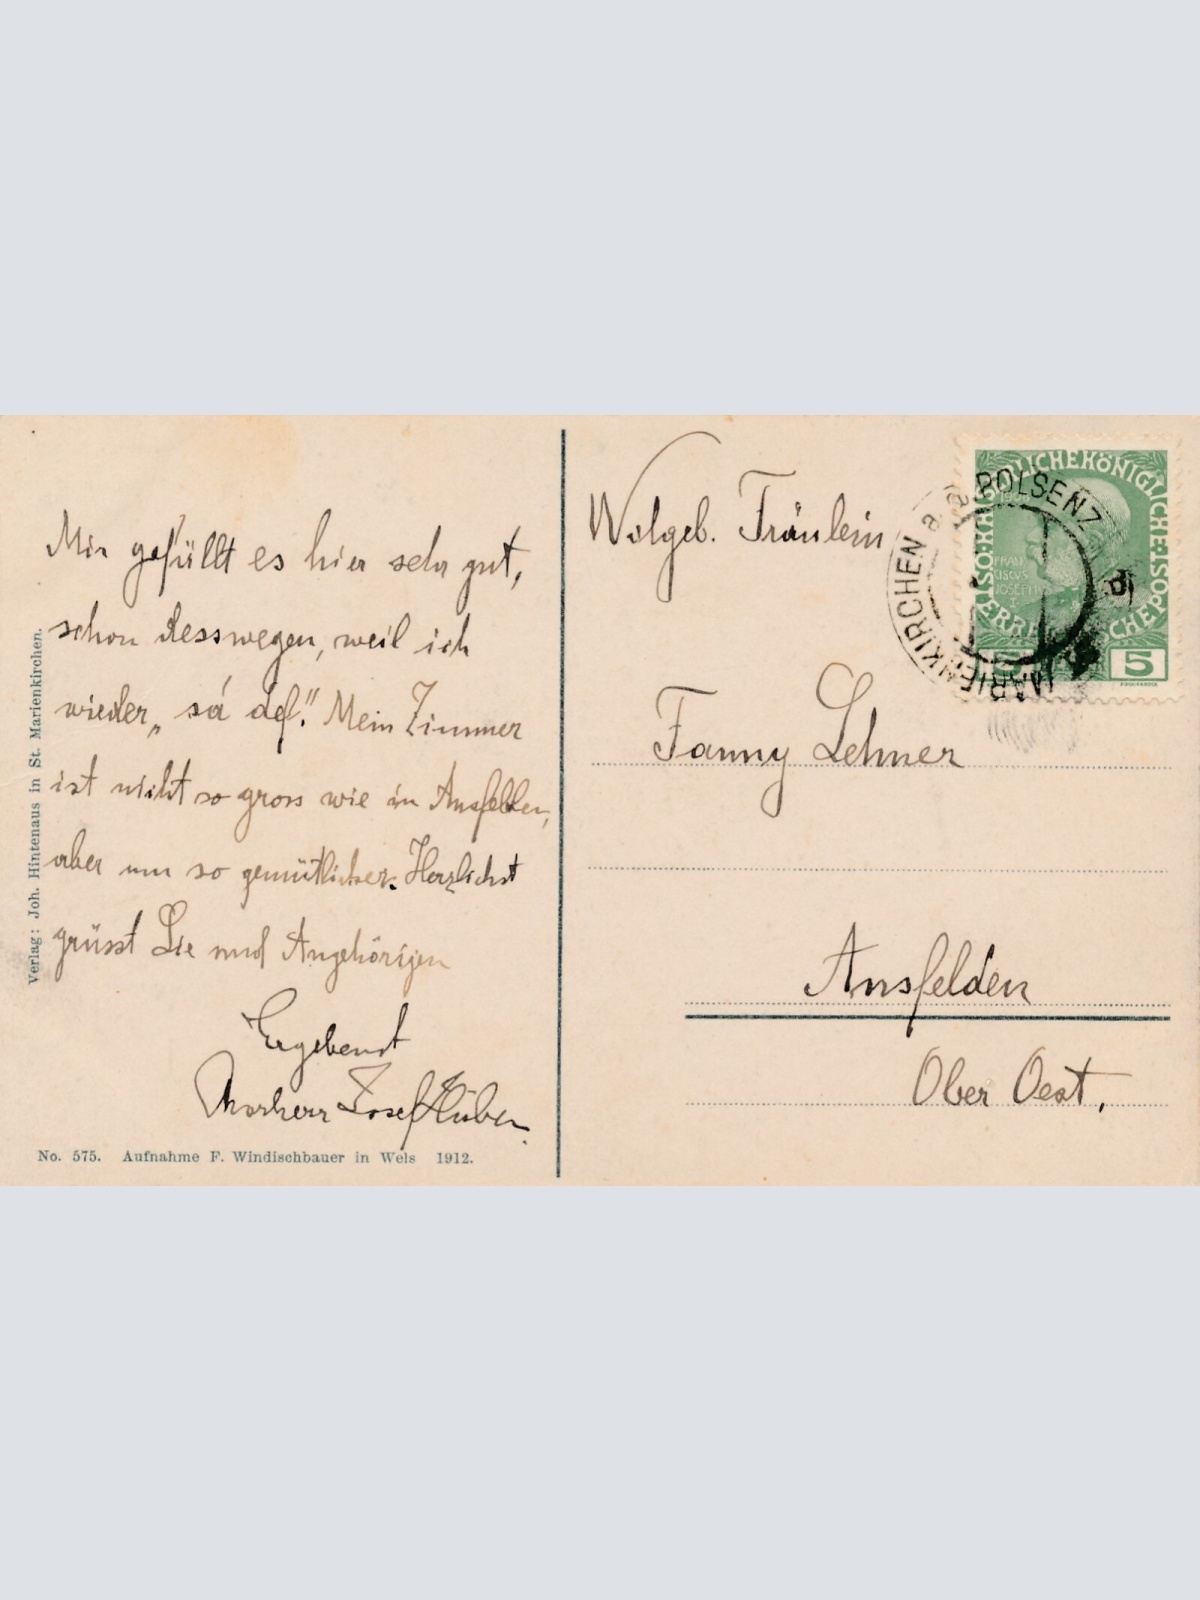 Mir gefüllt es hier sehr gut,
schon desswegen, weil ich
wieder „ sá def." Mein Zimmer
ist nicht so gross wie in Ansfelden,
aber um so gemütlicher. Herzlichst
grüsst Sie und Angehörigen
Ergebenst
Josef Huber
Verlag: Joh. Hintenaus in St. Marienkirchen.
No. 575. Aufnahme F. Windischbauer in Wels 1912.
Wolgeb. Fräulein
Fanny Lehner
Ansfelden
Ober Oest.
MARIENKIRCHEN a. d. POLSENZ
FRAN
CISCVS
JOSEPHVS
I
5